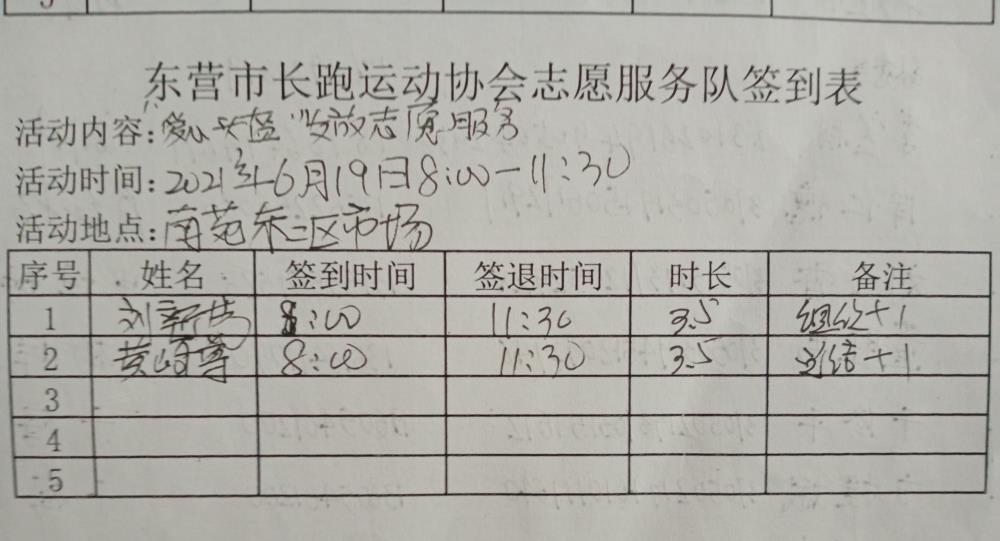 东营市长跑运动协会志愿服务队签到表
活动内容:"爱心头盔"发放志愿服务
活动时间:2021年6月19日8:00-11:30
活动地点:南苑东二区市场
序号 姓名 签到时间 签退时间 时长 备注
1 刘 8:00 11:30 3.5 组织+1
2 黄 8:00 11:30 3.5 总结+1
3
4
5